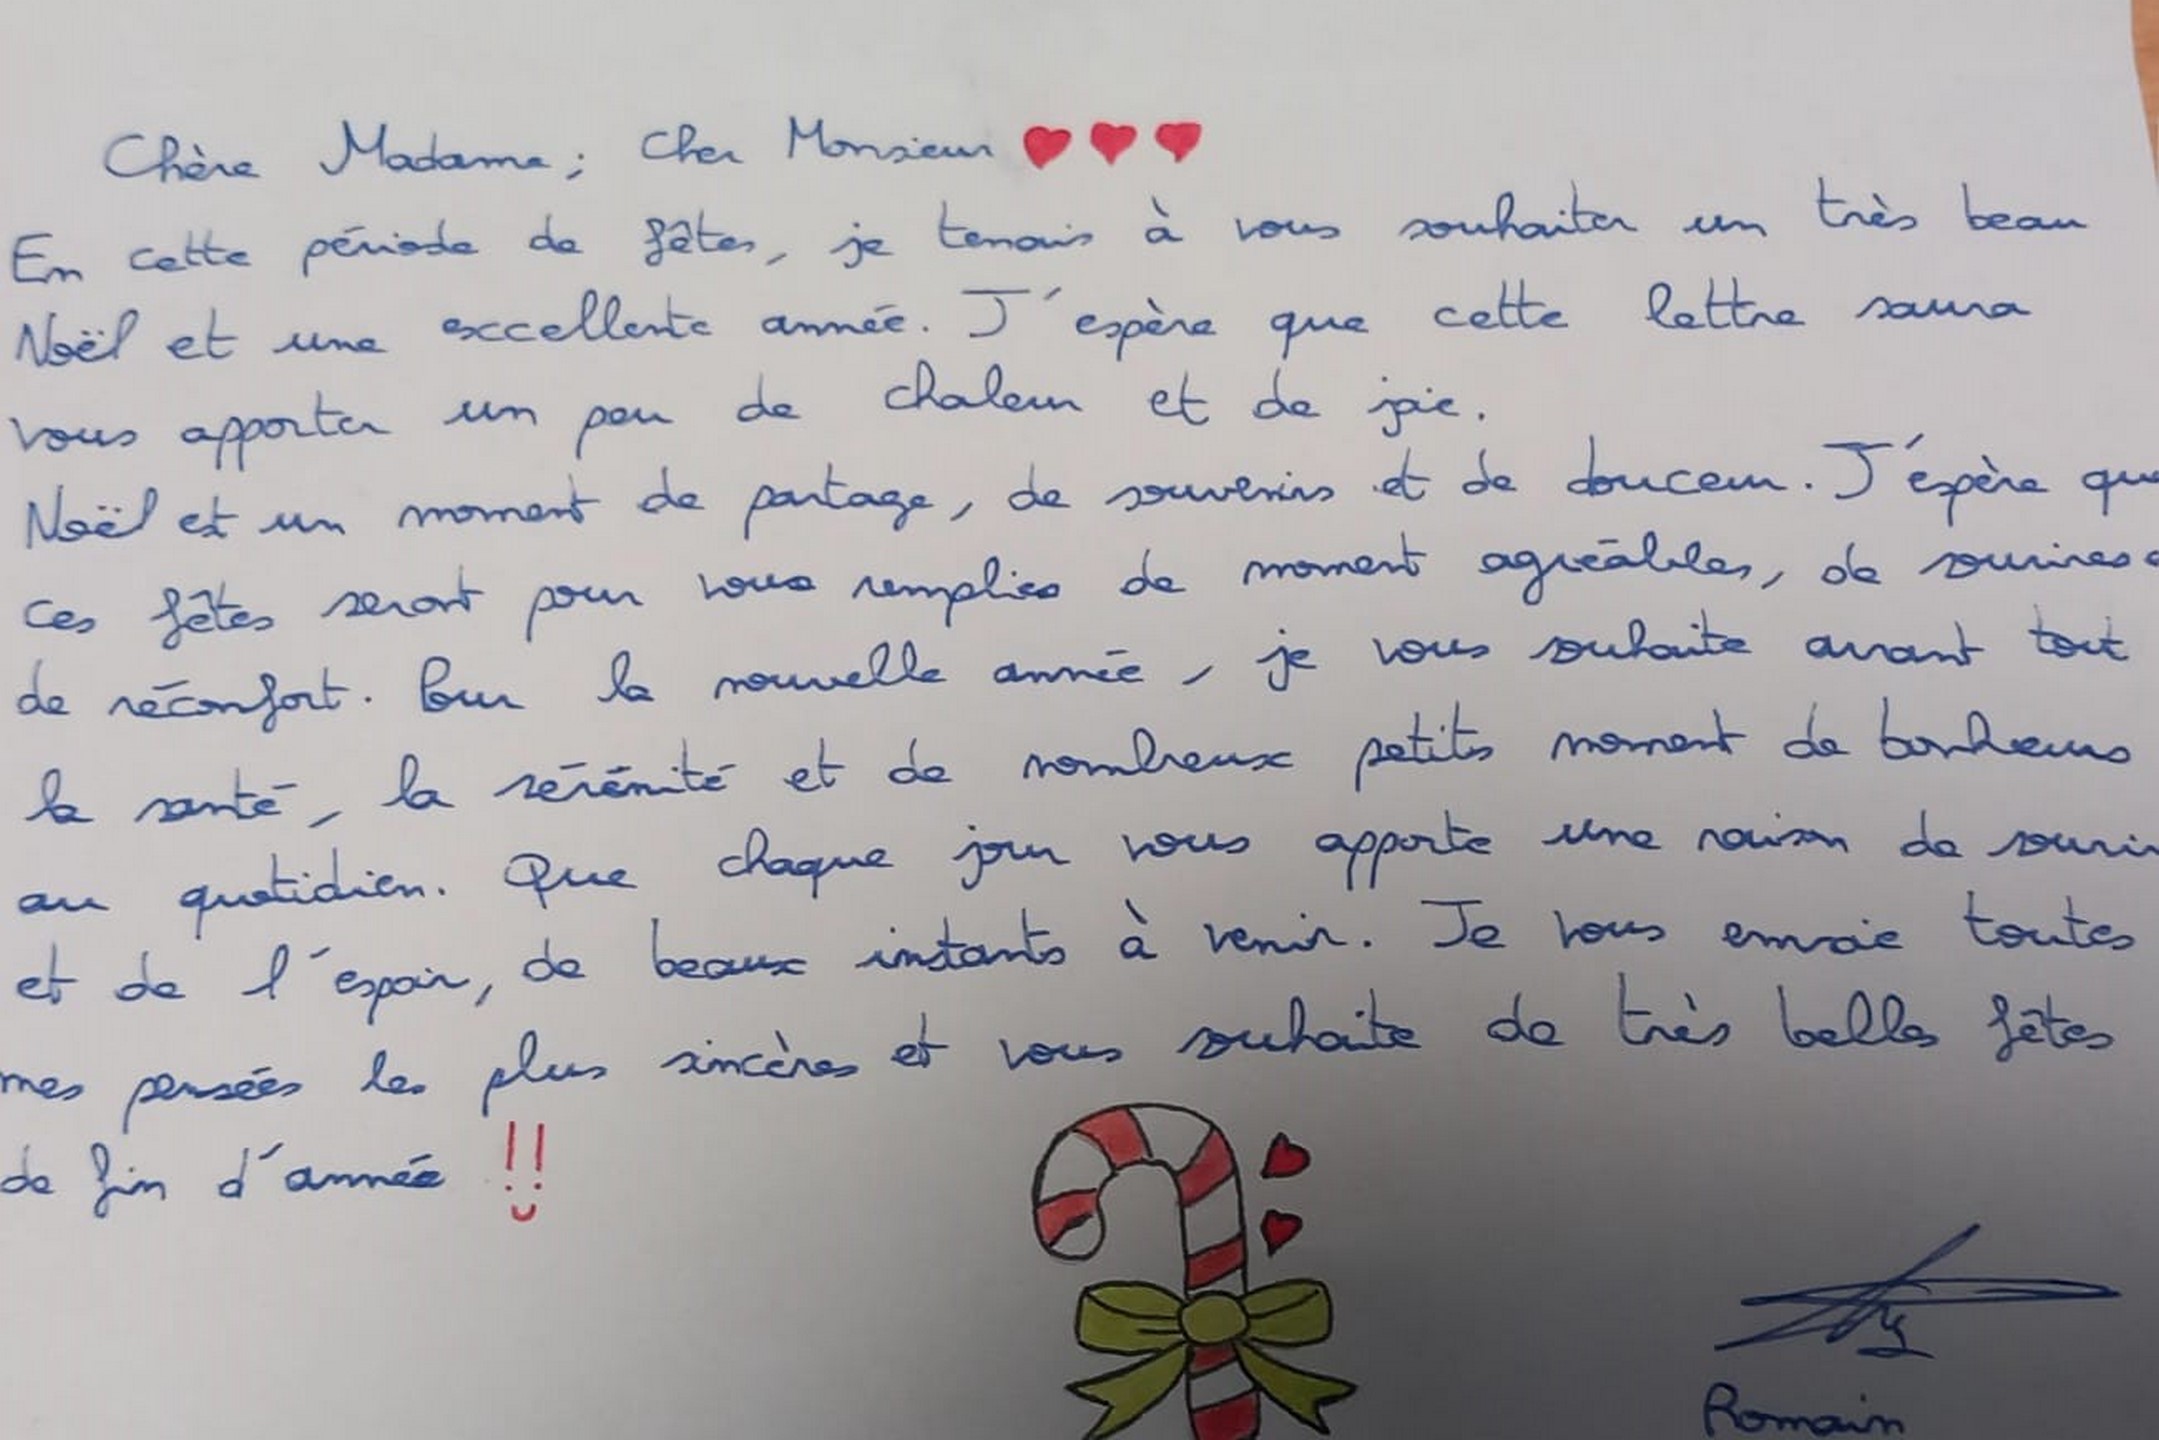 Chère Madame; Cher Monsieur
En cette période de fêtes, je tenais à vous souhaiter un très beau
Noël et une excellente année. J'espère que cette lettre saura
vous apporter un peu de chaleur et de joie.
Noël est un moment de partage, de souvenirs et de douceur. J'espère que
ces fêtes seront pour vous remplies de moment agréables, de sourires
de réconfort. Pour la nouvelle année, je vous souhaite avant tout
la santé, la sérénité et de nombreux petits moment de bonheurs
au quotidien. Que chaque jour vous apporte une raison de sourir
et de l'espoir, de beaux instants à venir. Je vous envoie toutes
mes pensées les plus sincères et vous souhaite de très belles fêtes
de fin d'année !!
Romain